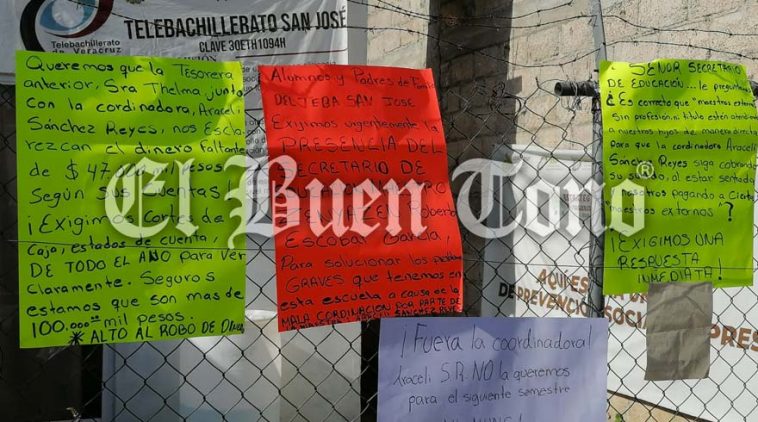 TELEBACHILLERATO SAN JOSÉ
CLAVE 30ETH1094H
Telebachillerato
de Veracruz
Queremos que la Tesorera
anterior, Sra Thelma junto
con la cordinadora, Araceli
Sánchez Reyes, nos Escla-
rezcan el dinero Faltante
de $ 47,000 mil pesos
Según sus Cuentas
¡Exigimos Cortes de
Caja, estados de cuenta,
DE TODO EL AÑO PARA Ver
Claramente. Seguros
estamos que son mas de
100,000.00 mil pesos.
* ALTO AL ROBO DE
Alumnos y Padres de
DEL TEBA SAN JOSE
Exigimos urgentemente LA
PRESENCIA DEL
SECRETARIO DE
ZENYAZEN Roberto
Escobar García,
Para solucionar los
GRAVES que tenemos en
esta escuela a causa de la
MALA CORDINACION POR PARTE DE
SANCHEZ REYES
SEÑOR SECRETARIO
DE EDUCACIÓN... le preguntamos
¿Es correcto que "maestros externos"
Sin profesión, o titulo estén atendiendo
a nuestros hijos de manera directa
para que la coordinadora Araceli
Sánchez Reyes siga cobrando
su sueldo, al estar sentada
nosotros pagando a Ciertos
"maestros externos" ?
¡EXIGIMOS UNA
RESPUESTA
INMEDIATA!
¡Fuera la coordinadora!
Araceli S.R. NO la queremos
para el siguiente semestre
El Buen Tono®
AQUÍ
DE PREVENCIÓN SOCIAL